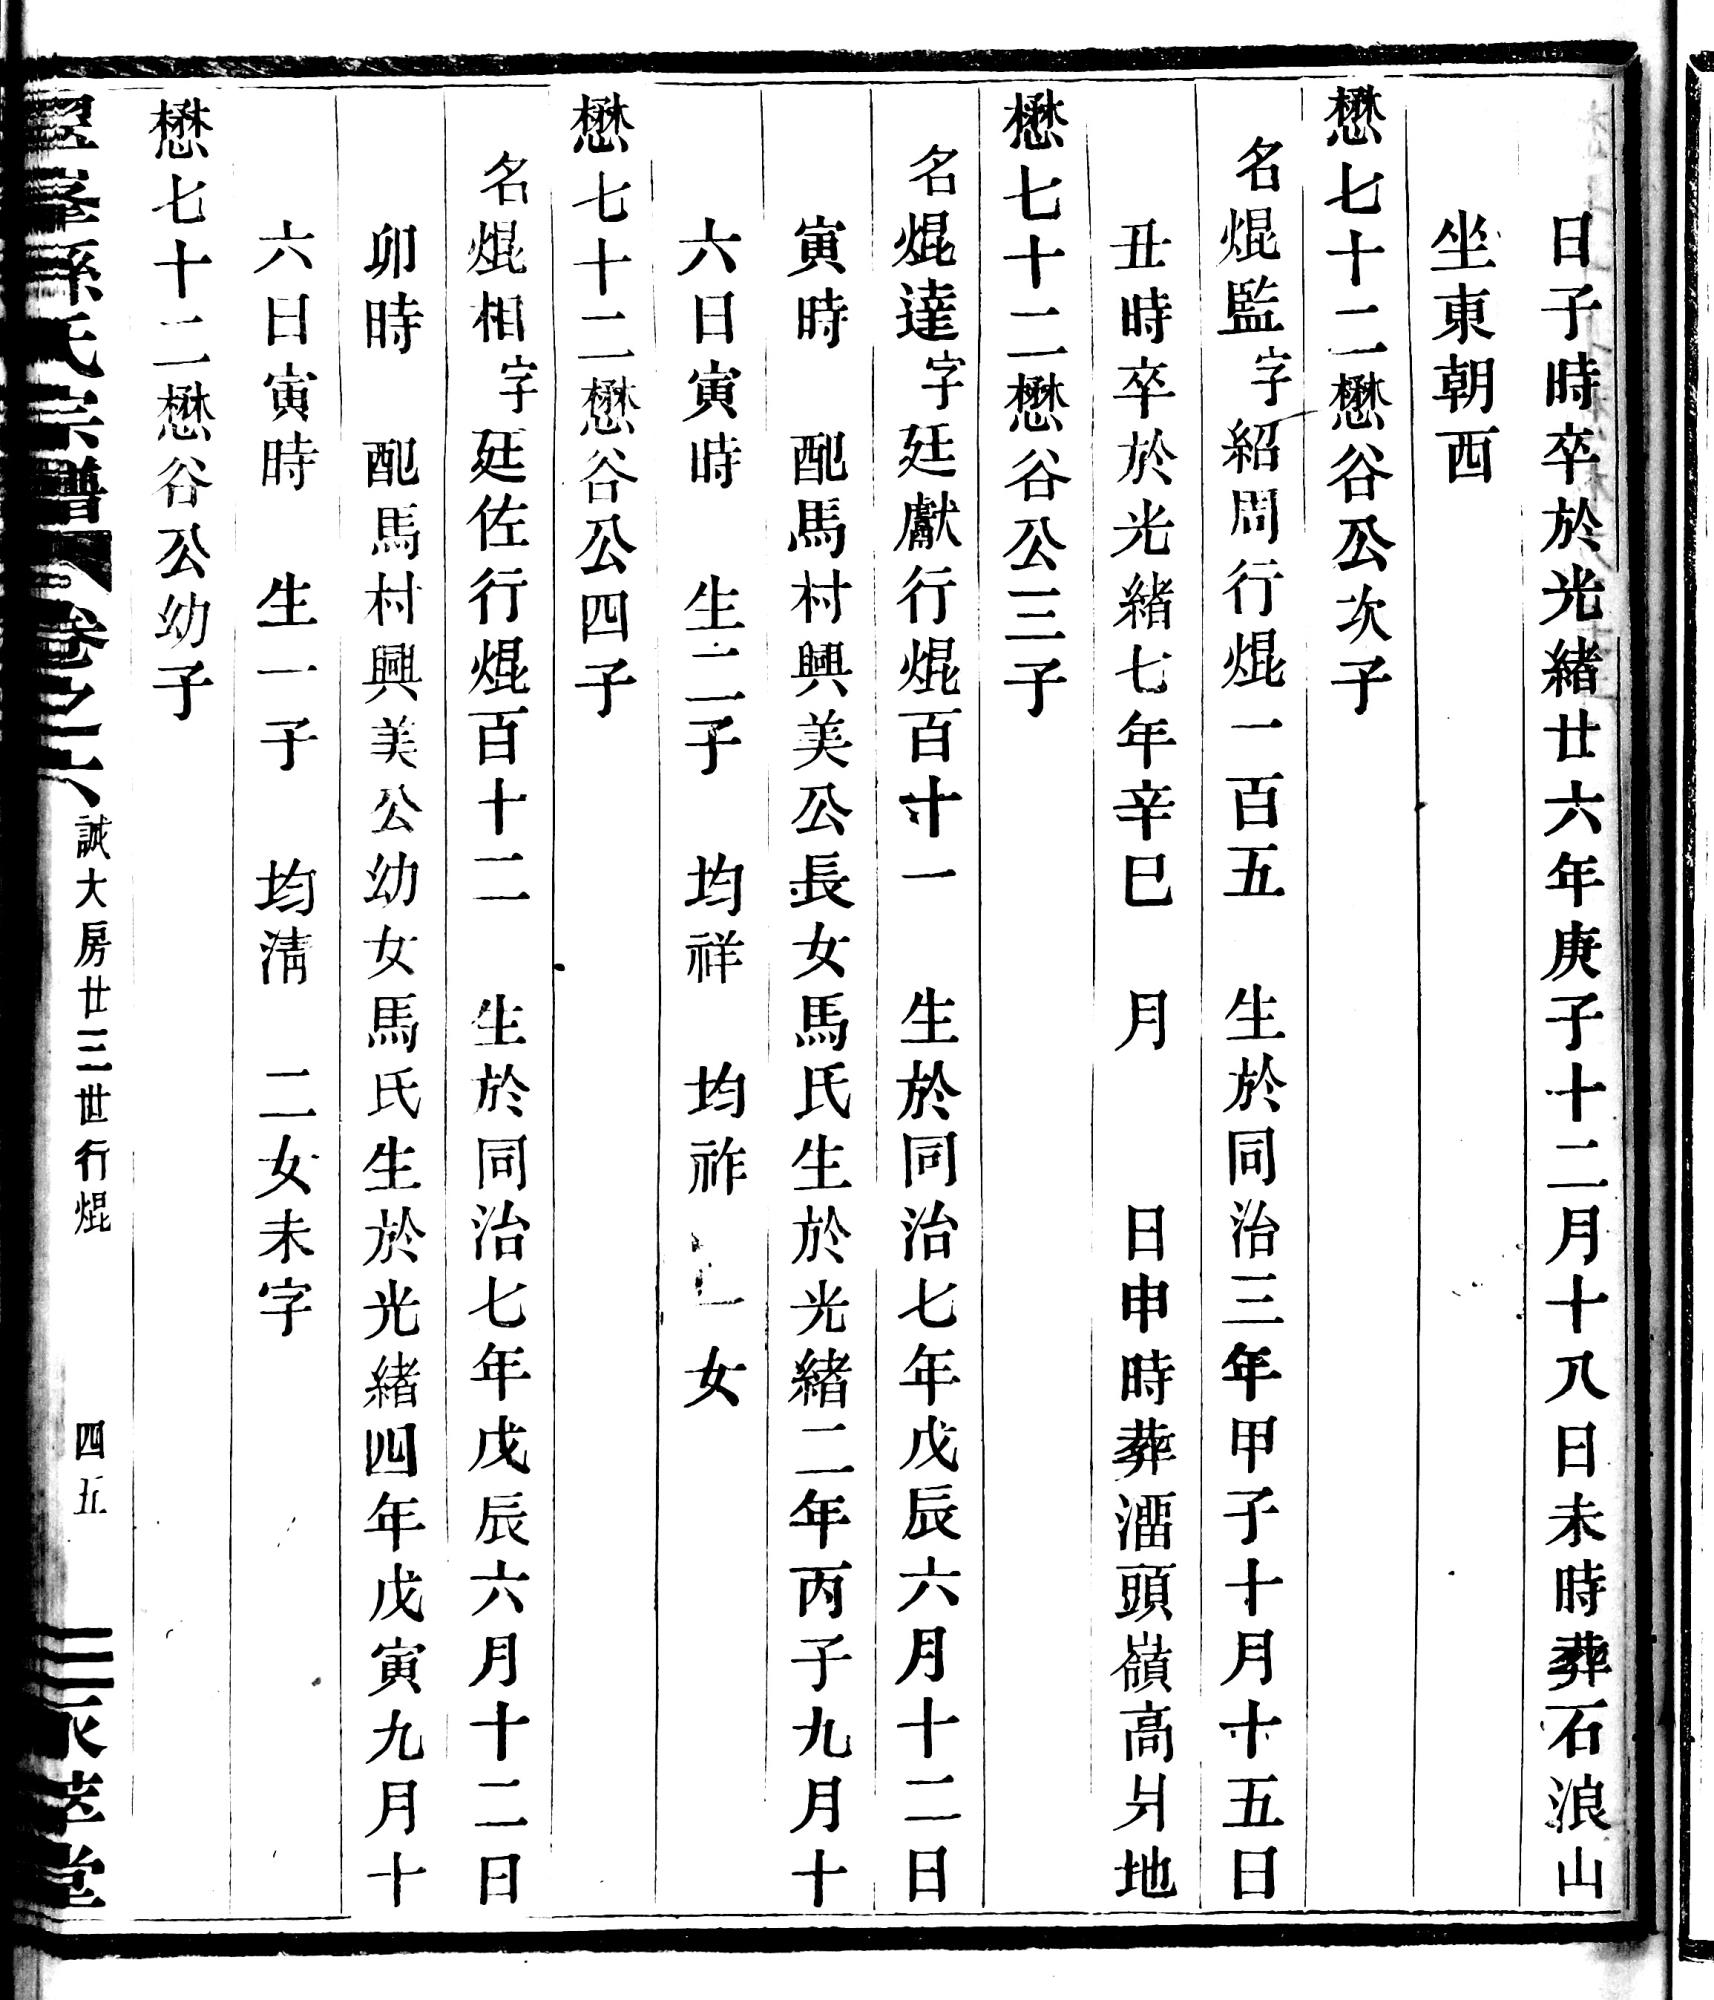 日子時卒於光緒廿六年庚子十二月十八日未時葬石浪山
坐東朝西
懋七十二懋谷公次子
名焜監字紹周行焜一百五　生於同治三年甲子十月十五日
丑時卒於光緒七年辛巳　月　　日申時葬湽頭嶺高爿地
懋七十二懋谷公三子
名焜達字廷獻行焜百十一　生於同治七年戊辰六月十二日
寅時　配馬村興美公長女馬氏生於光緒二年丙子九月十
六日寅時　生二子　均祥　均祚　一女
懋七十二懋谷公四子
名焜相字廷佐行焜百十二　生於同治七年戊辰六月十二日
卯時　配馬村興美公幼女馬氏生於光緒四年戊寅九月十
六日寅時　生一子　均清　二女未字
懋七十二懋谷公幼子
孫氏宗譜　卷之六　誠大房廿三世行焜　四五　萃堂